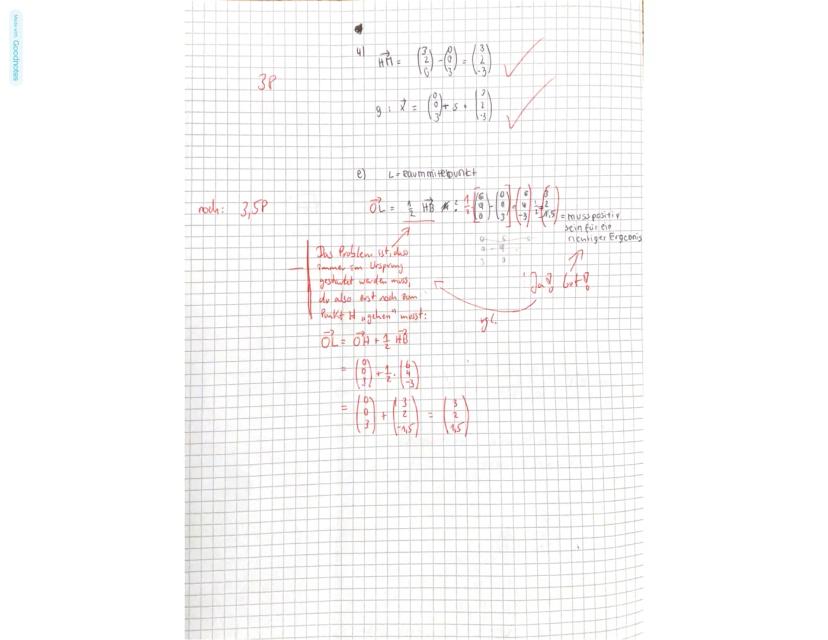 Made with Goodnotes
4)
HM = (3 2 0) - (0 0 3) = (3 2 -3)
3P
g: x = (0 0 3) + s · (3 2 -3)
e) L = Raummittelpunkt
noch: 3,5P
OL = 1/2 HB
= muss positiv
sein für ein
richtiger Ergebnis
Das Problem ist, dass
immer im Ursprung
gestartet werden muss,
du also erst noch zum
Punkt H „gehen" musst:
Ja!
vgl.
OL = OH + 1/2 HB
= (0 0 3) + 1/2 · (6 4 -3)
= (0 0 3) + (3 2 -1,5) = (3 2 1,5)